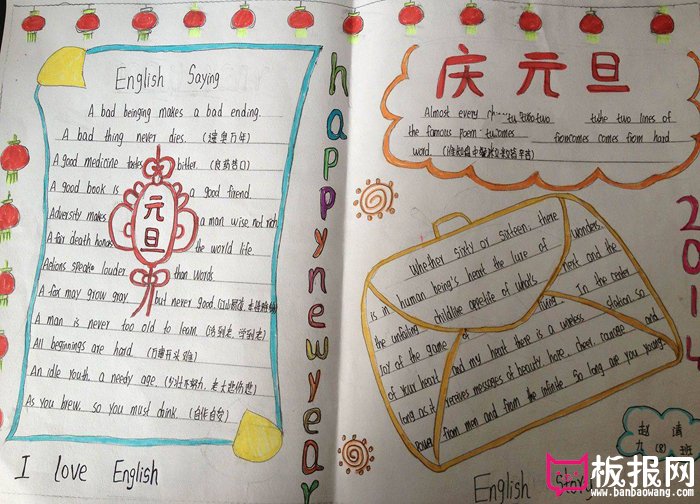 English Saying
A bad beinging makes a bad ending.
A bad thing never dies. (遗臭万年)
A good medicine tastes bitter. (良药苦口)
A good book is a good firend.
Adversity makes a man wise, not rich.
A fair death honors the world life.
Actions speak louder than words
A fax may grow gray, but never good.
A man is never too old to learn. (活到老,学到老)
All beginnings are hard. (万事开头难)
An idle youth, a needy age. (少壮不努力,老大徒伤悲)
As you brew, so you must drink. (自作自受)
元旦
I love English
happynewyear
庆元旦
Almost every tu tuotuo tuhe two lines of
the famous poem tucomes fromcomes comes from hard
word.
2014
Whether sixty or sixteen, there
is in human being's heart the lure of wonders,
the unfailing childlike appetite of what's next and the
joy of the game of living. In the center
of your heart and my heart there is a wireless station so
long as it receives messages of beauty, hope, cheer, courage and
power from men and from the infinite. So long are you young.
English Story
赵靖
九(8)班
板报网
www.banbaowang.com